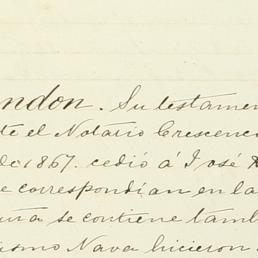 ndon. Su testamen
te el Notario Crescenc
de 1867. cedió á José
e correspondían en la
ura se contiene tamb
ismo Nava hicieron